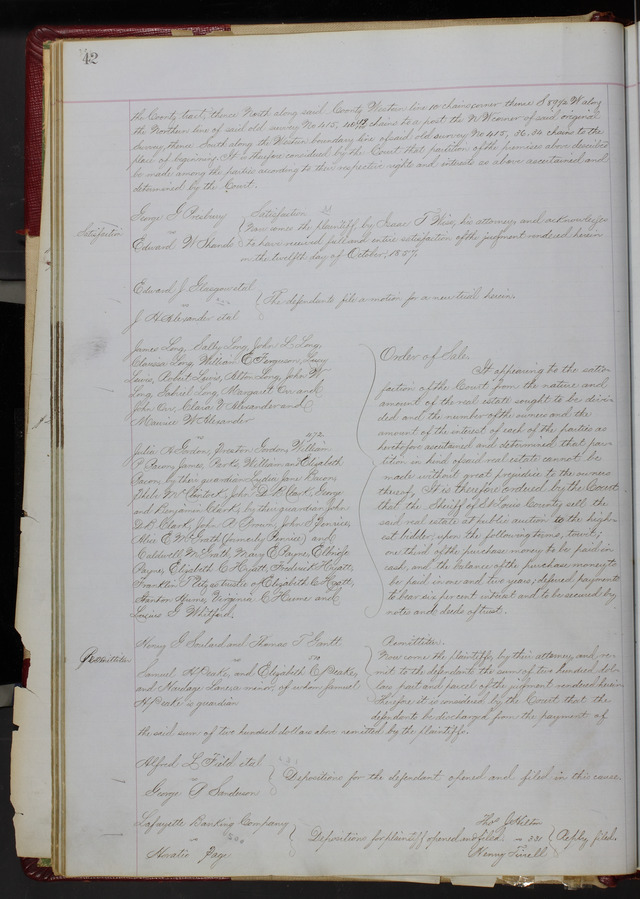 42
the County tract, thence North along said County Western line 10 chains corner thence S 89¾ W along
the Northern line of said old survey No 415, chains to a post the N W corner of said original
survey, thence South along the Western boundary line of said old survey No 415, 36.34 chains to the
place of beginning. It is therefore considered by the Court that partition of the premises above described
be made among the parties according to their respective right and interests as above ascertained and
determined by the Court.
George G Presbury Satisfaction
Satisfaction Now comes the plaintiff, by Isaac T Wise, his attorney and acknowledges
Edward W Shands to have received full and entire satisfaction of the judgment rendered herein
on the twelfth day of October, 1857.
Edward J. Glasgow et al
The defendants file a motion for a new trial herein.
J. H Alexander et al
James Long, Sally Long, John L. Long,
Clarissa Long, William E Ferguson, Lucy
Lewis, Robert Lewis, Long, John W
Long, Gabriel Long, Margaret Orr and
John Orr, Clara V Alexander and
Maurice W Alexander
vs 1072
Julia A Gordon, Preston Gordon, William
P Bacon, James, Parks, William and Elizabeth
Bacon, by their guardian Lydia Jane Bacon,
McClintock, John D B Clark, George
and Benjamin Clark, by their guardian John
D B Clark, John P Brown, John S
Alice E McGrath (formerly ) and
Caldwell McGrath, Mary E Payne, Elbridge
Payne, Elizabeth C Hyatt, Frederick Hyatt,
Franklin P trustee of Elizabeth C Hyatt,
Stanton Hume, Virginia C Hume and
Louisa G Whitford.
Order of Sale.
It appearing to the satis-
faction of the Court, from the nature and
amount of the real estate sought to be divi-
ded and the number of the owners and the
amount of the interest of each of the parties as
heretofore ascertained and determined that par-
tition in kind of said real estate cannot be
made without great prejudice to the owners
thereof, It is therefore ordered by the Court
that the Sheriff of St Louis County sell the
said real estate at public auction to the high-
est bidder, upon the following terms, to wit;
one third of the purchase money to be paid in
cash, and the balance of the purchase money to
be paid in one and two years; deferred payments
to bear six per cent interest and to be secured by
notes and deeds of trust.
Henry G Soulard and Thomas T Gantt Remittitur.
Remittitur Now come the plaintiffs, by their attorney, and re-
Samuel H Peake, and Elizabeth C Peake, mit to the defendants the sum of two hundred dol-
and a minor, of whom Samuel lars part and parcel of the judgment rendered herein.
H Peake is guardian Therefore it is considered by the Court that the
defendants be discharged from the payment of
the said sum of two hundred dollars above remitted by the plaintiffs.
Alfred L Field et al
Depositions for the defendant opened and filed in this cause.
George P Sanderson
Lafayette Banking Company Thos J Hilton
Depositions for plaintiff opened and filed vs 331 Reply filed.
Horatio Page Henry Tirrell